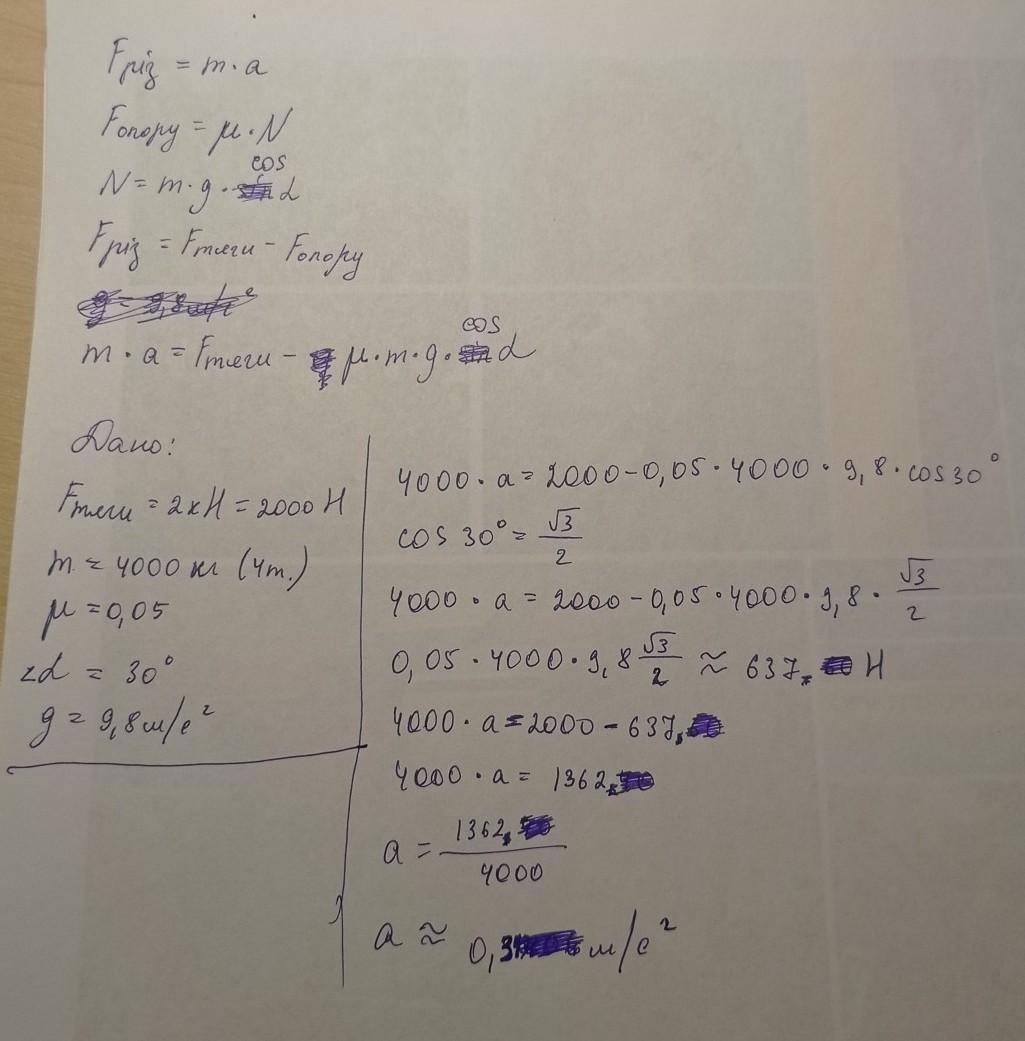 Fріз = m · a
Fопору = μ · N
N = m · g · cos α
Fріз = Fтяги - Fопору
m · a = Fтяги - μ · m · g · cos α
Дано:
Fтяги = 2кН = 2000 Н
m = 4000 кг (4т.)
μ = 0,05
∠α = 30°
g = 9,8 м/с²
4000 · a = 2000 - 0,05 · 4000 · 9,8 · cos 30°
cos 30° = √3/2
4000 · a = 2000 - 0,05 · 4000 · 9,8 · √3/2
0,05 · 4000 · 9,8 √3/2 ≈ 637 Н
4000 · a = 2000 - 637
4000 · a = 1362
a = 1362/4000
a ≈ 0,3 м/с²